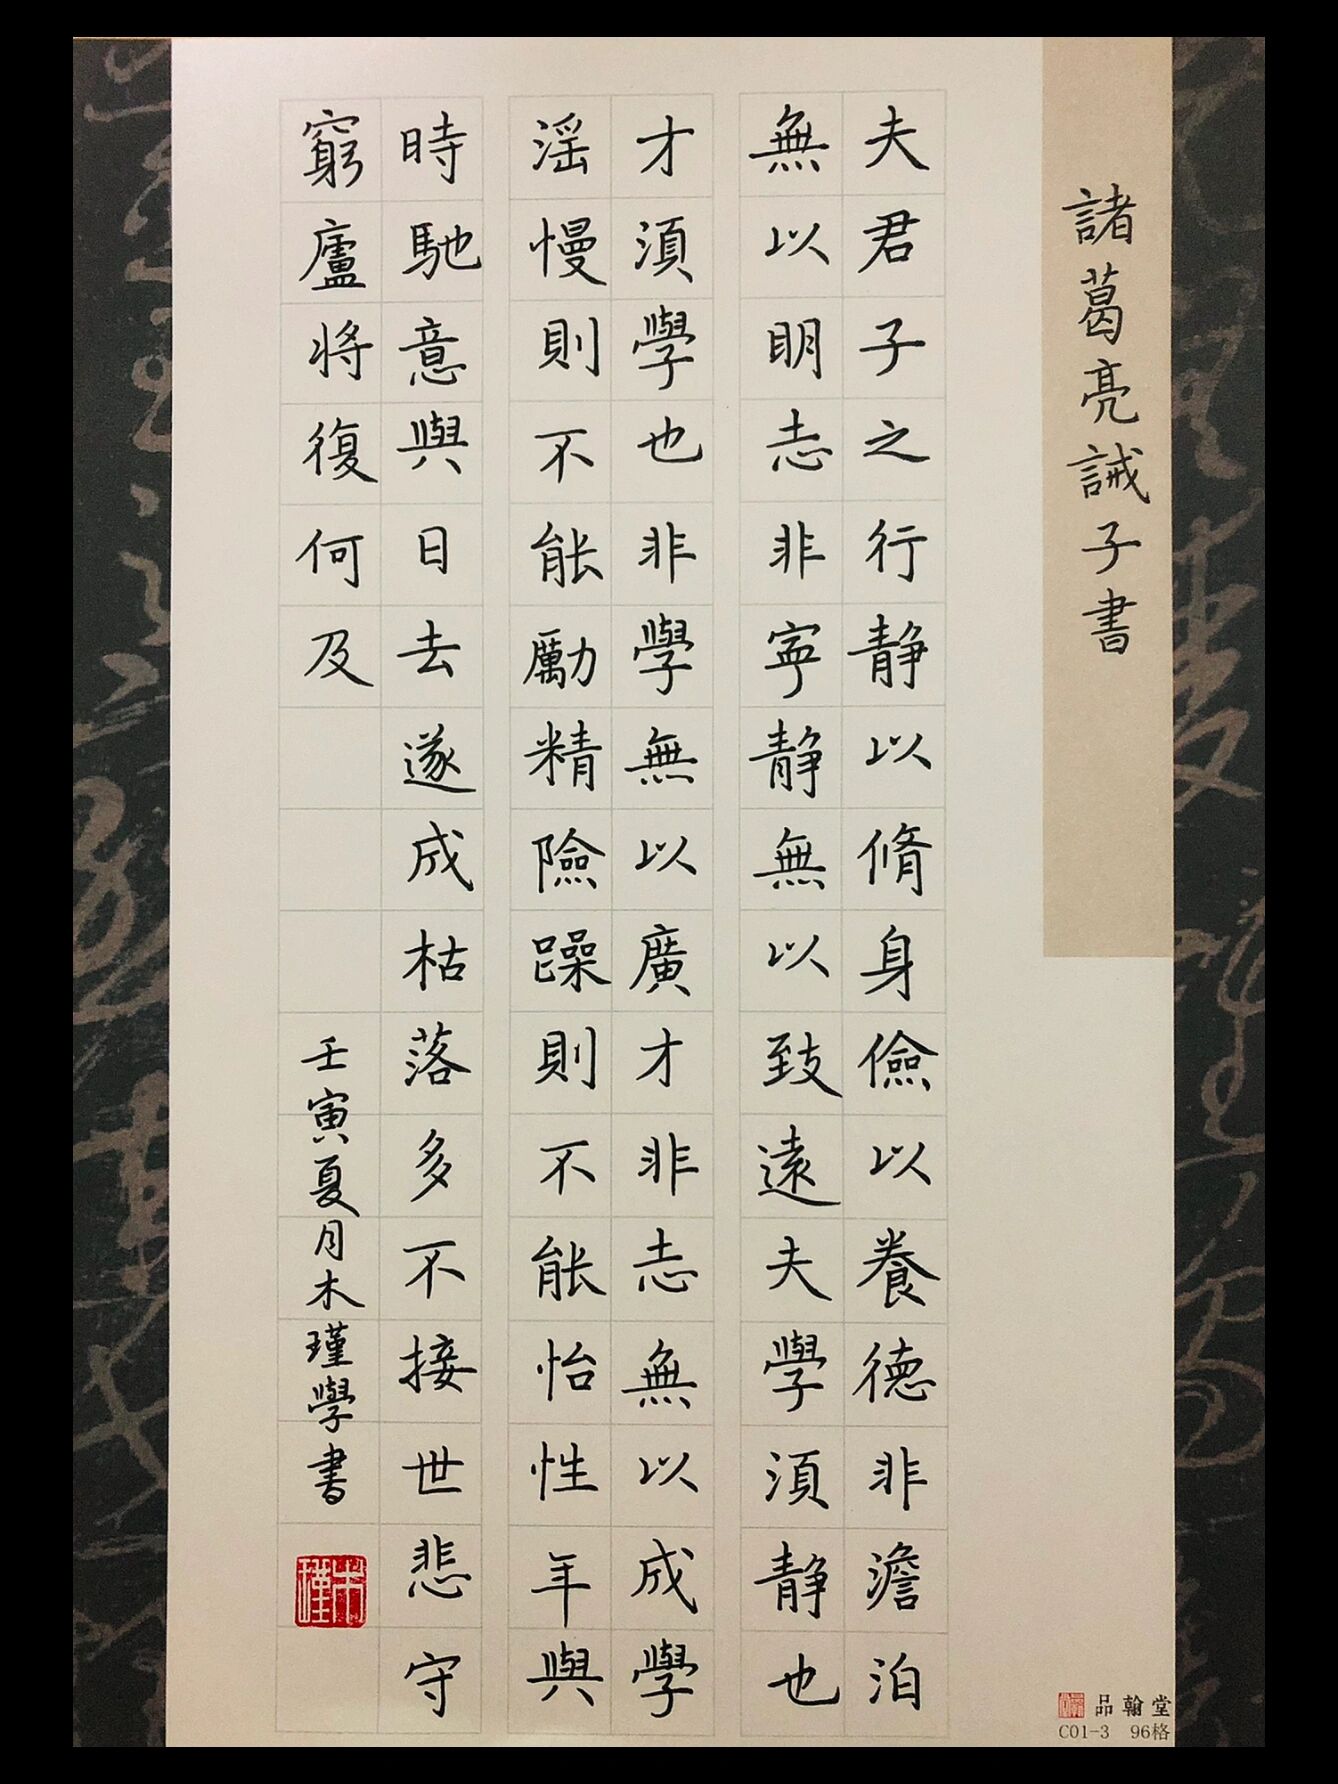 諸葛亮誡子書
夫君子之行静以脩身儉以養德非澹泊
無以明志非寧静無以致遠夫學須静也
才須學也非學無以廣才非志無以成學
淫慢則不能勵精險躁則不能怡性年與
時馳意與日去遂成枯落多不接世悲守
窮廬將復何及
壬寅夏月木瑾學書
木瑾
品翰堂
C01-3 96格